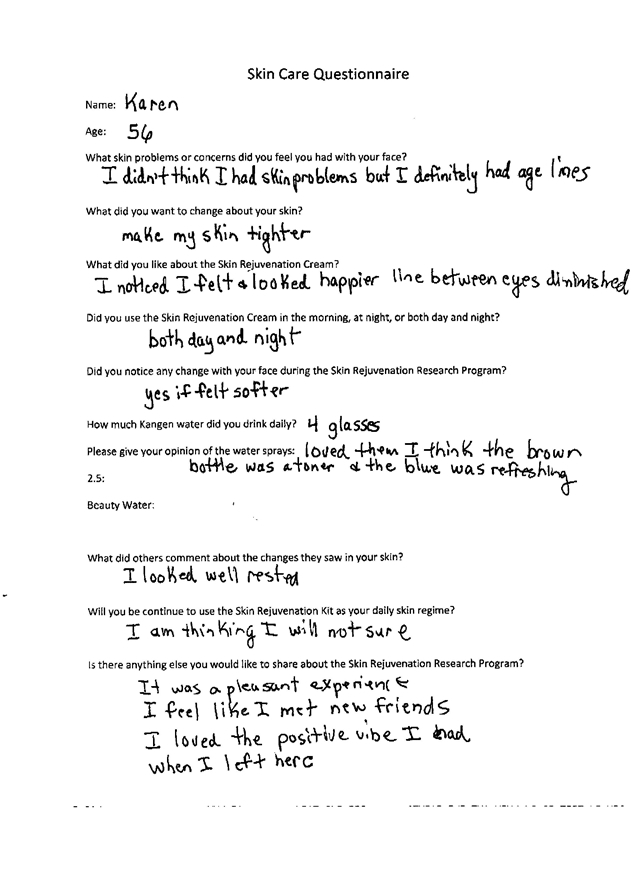 Skin Care Questionnaire
Name: Karen
Age: 56
What skin problems or concerns did you feel you had with your face?
I didn't think I had skin problems but I definitely had age lines
What did you want to change about your skin?
make my skin tighter
What did you like about the Skin Rejuvenation Cream?
I noticed I felt & looked happier line between eyes diminished
Did you use the Skin Rejuvenation Cream in the morning, at night, or both day and night?
both day and night
Did you notice any change with your face during the Skin Rejuvenation Research Program?
yes if felt softer
How much Kangen water did you drink daily? 4 glasses
Please give your opinion of the water sprays: loved them I think the brown
bottle was a toner & the blue was refreshing
2.5:
Beauty Water:
What did others comment about the changes they saw in your skin?
I looked well rested
Will you be continue to use the Skin Rejuvenation Kit as your daily skin regime?
I am thinking I will not sure
Is there anything else you would like to share about the Skin Rejuvenation Research Program?
It was a pleasant experience
I feel like I met new friends
I loved the positive vibe I had
when I left here